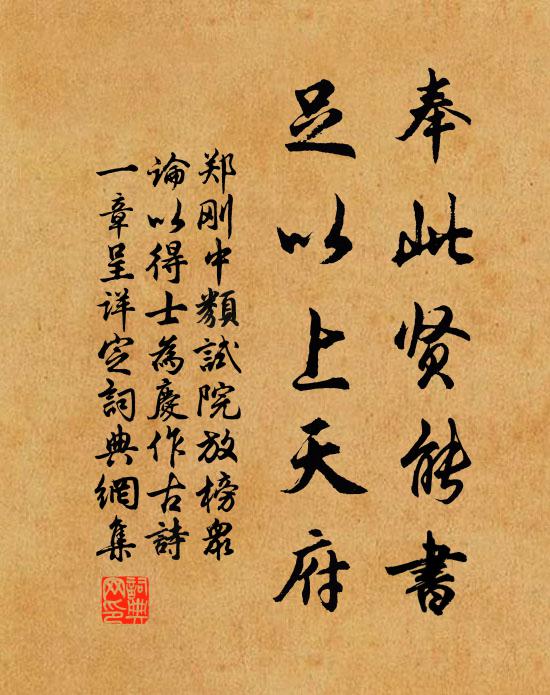 奉此贤能書
足以上天府
郑刚中類試院放榜眾
論以得士為慶作古詩
一章呈详定詞典網集
詞典网印